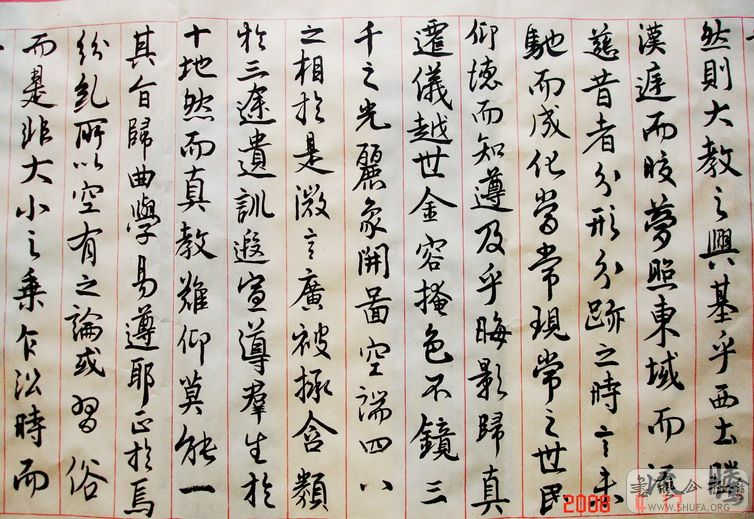 然則大教之興基乎西土騰
漢庭而皎夢照東域而流
慈昔者分形分跡之時言未
馳而成化當常現常之世民
仰德而知遵及乎晦影歸真
遷儀越世金容掩色不鏡三
千之光麗象開啚空端四八
之相於是微言廣被拯含類
於三途遺訓遐宣導羣生於
十地然而真教難仰莫能一
其旨歸曲學易遵耶正於焉
紛糺所以空有之論或習俗
而是非大小之乘乍沿時而
2008
WWW.SHUFA.ORG